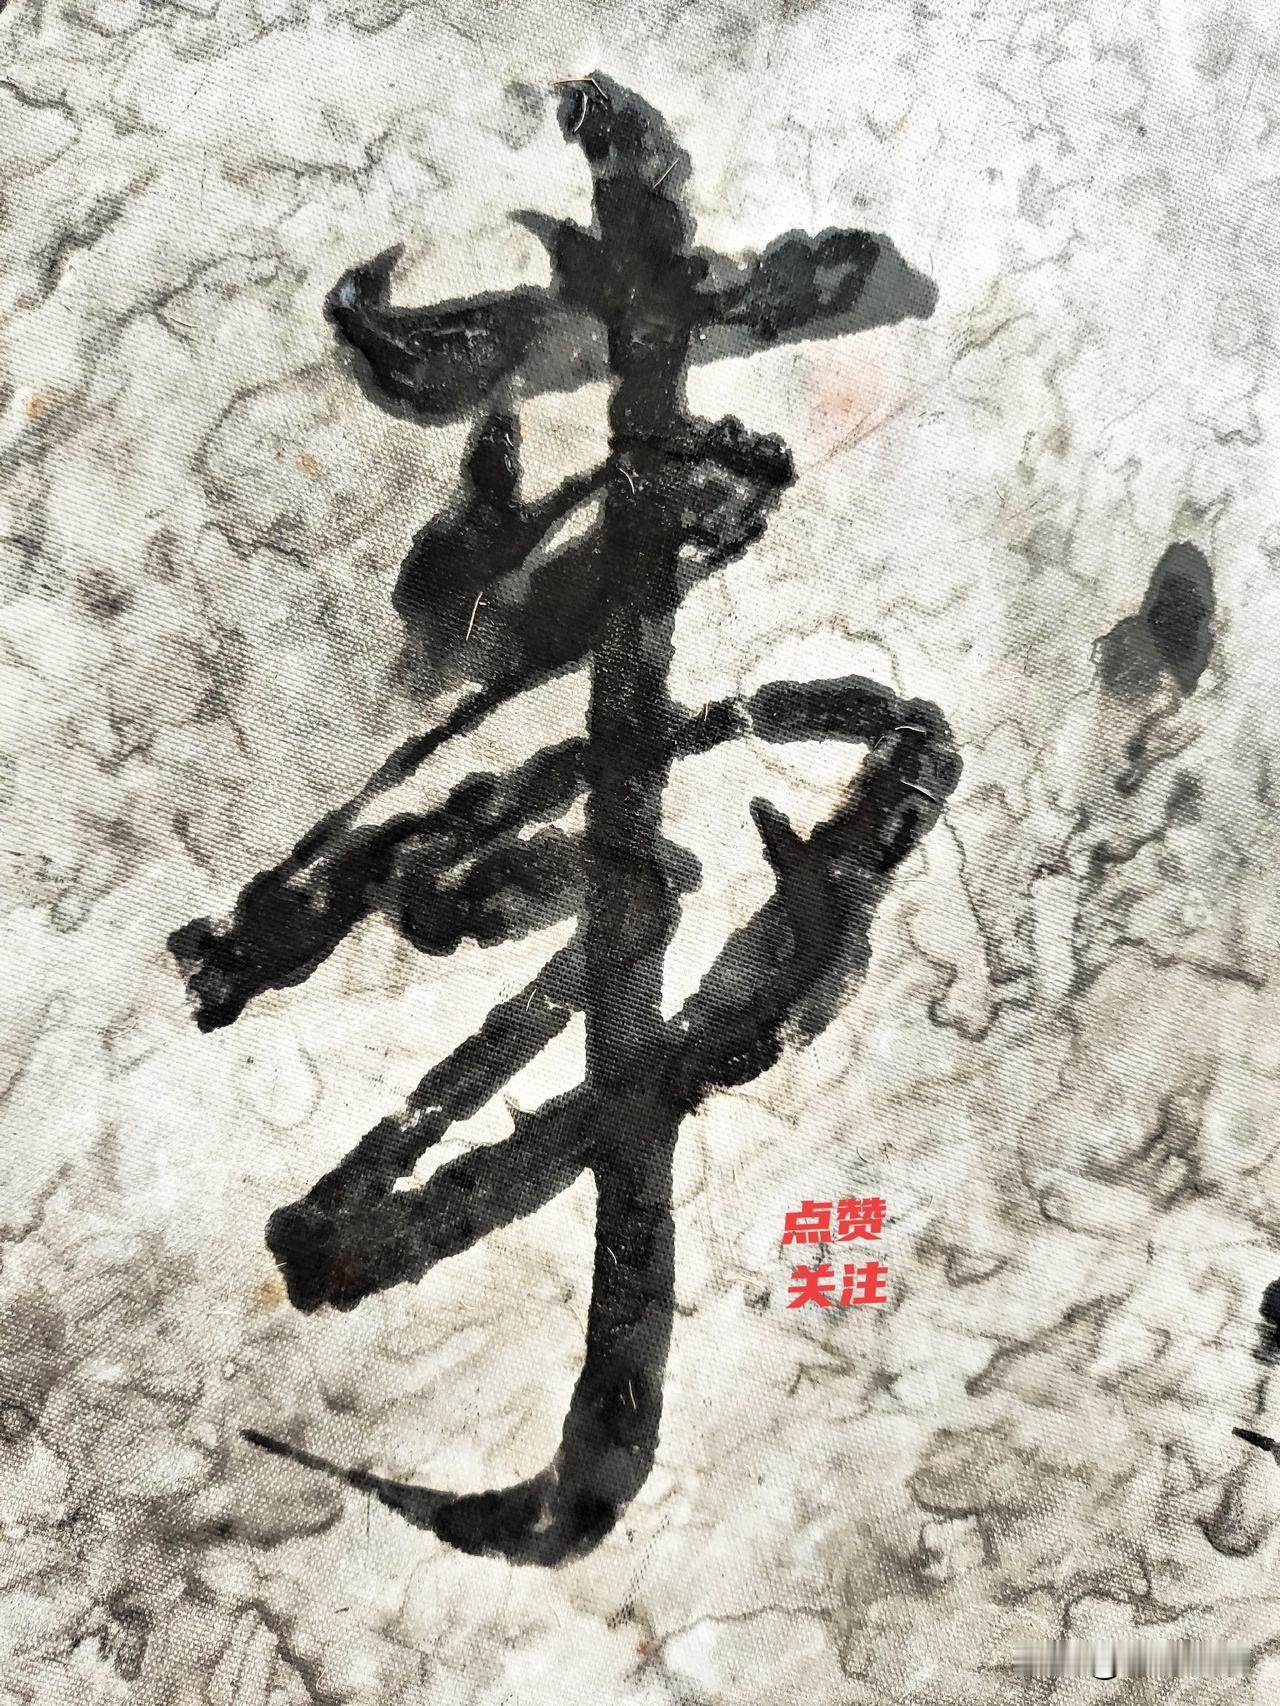 事
点赞
关注